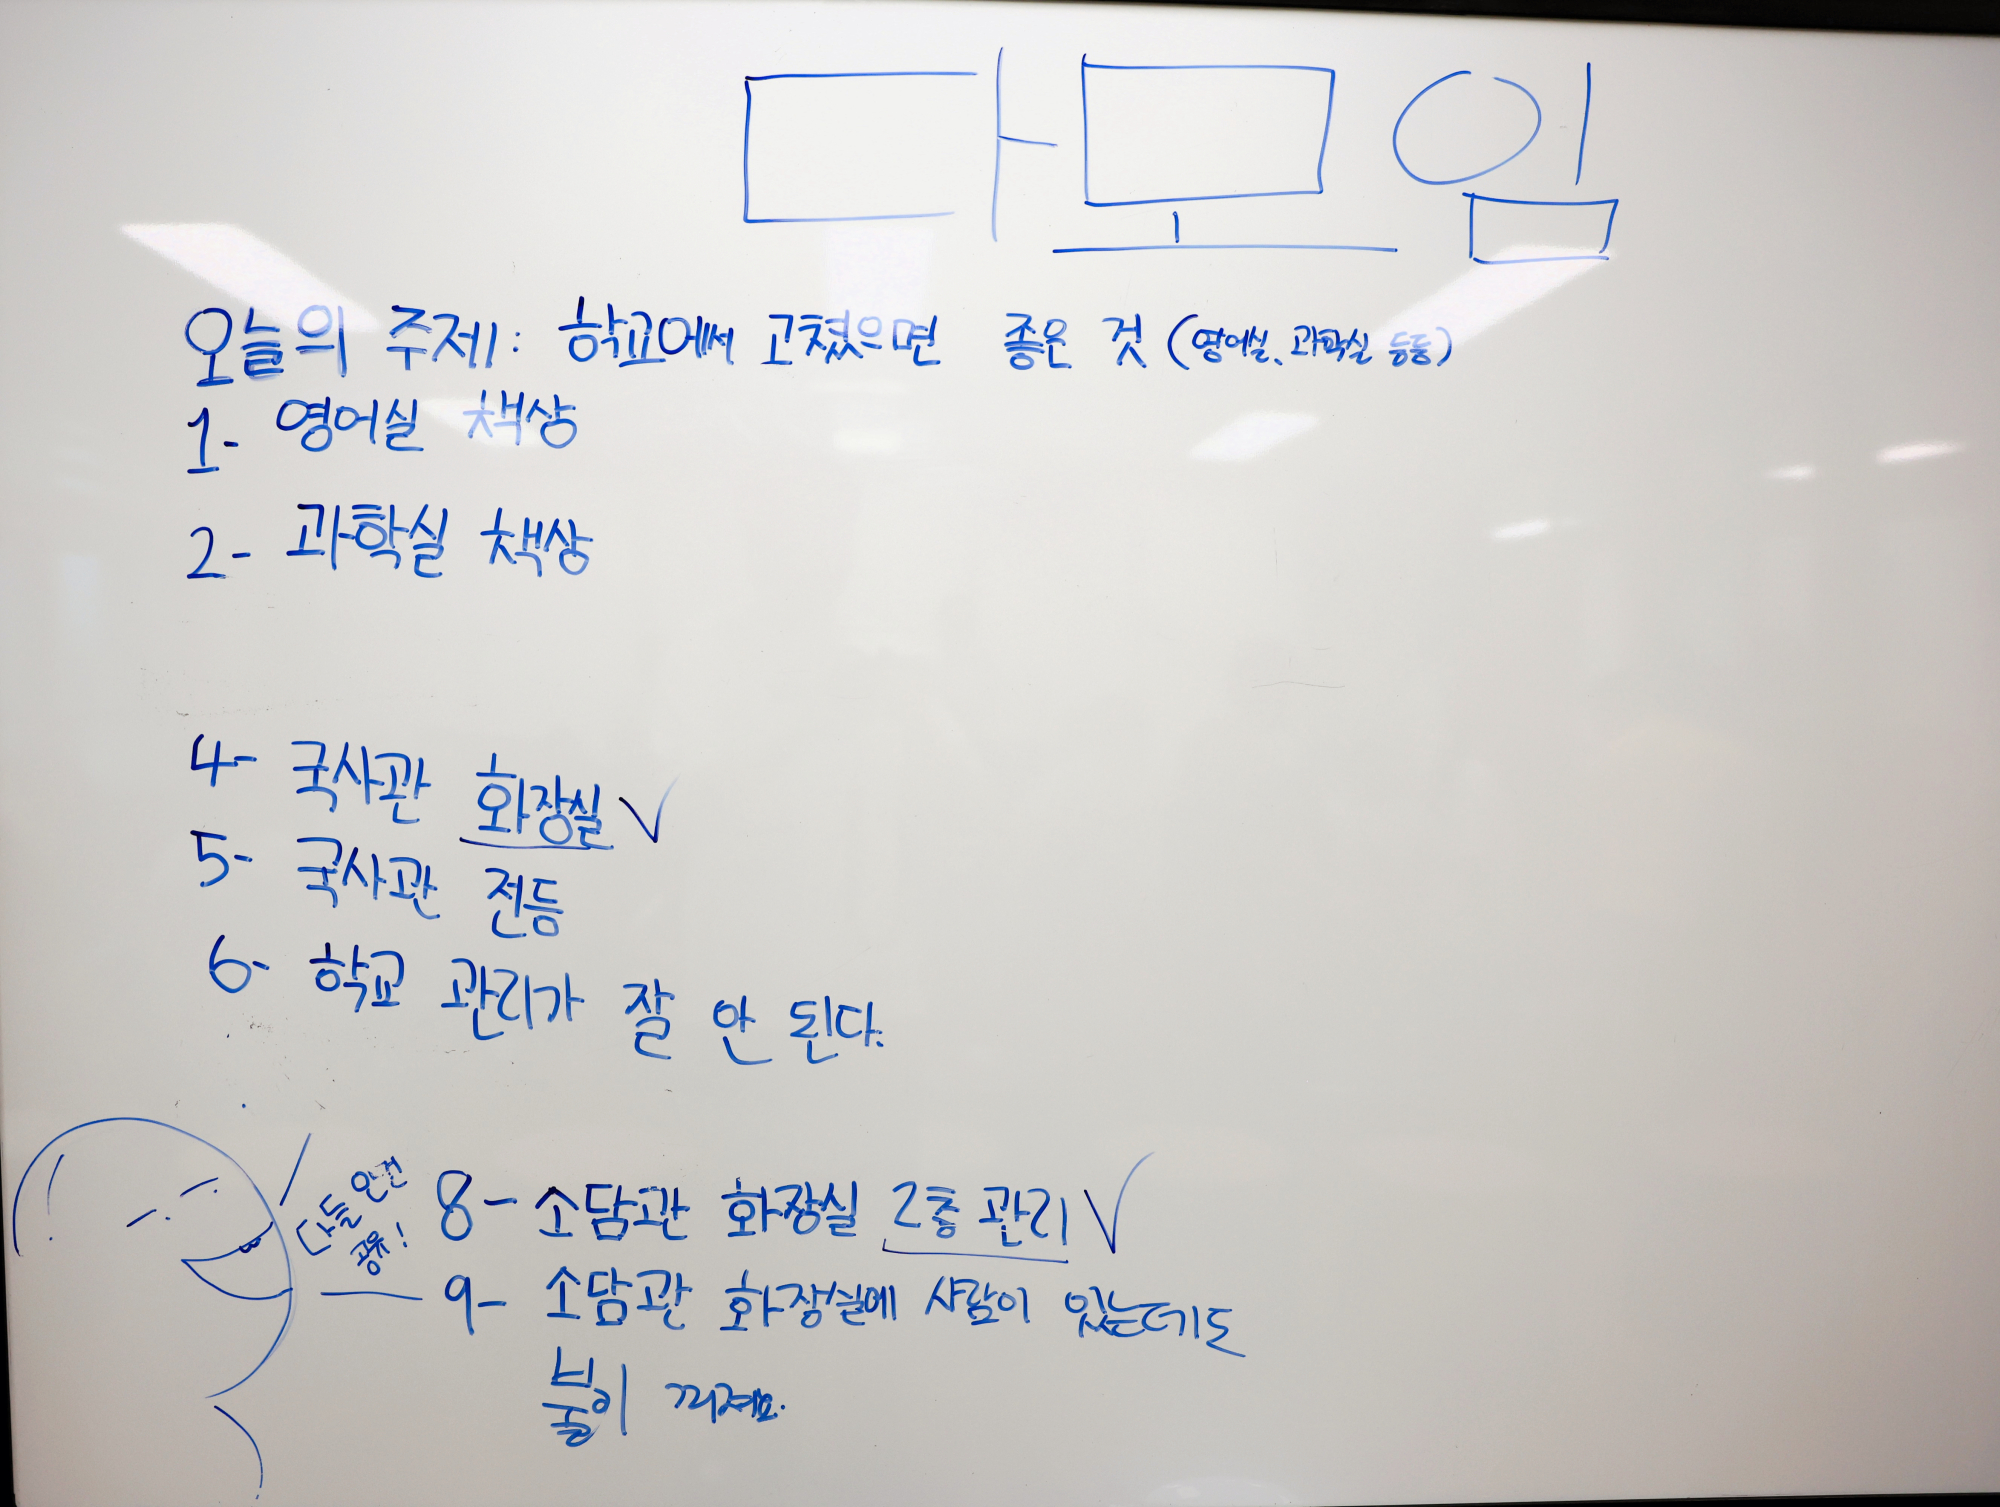 다모임
오늘의 주제: 학교에서 고쳤으면 좋은 것 (영어실, 과학실 등등)
1- 영어실 책상
2- 과학실 책상
4- 국사관 화장실 ✓
5- 국사관 전등
6- 학교 관리가 잘 안 된다.
다들 안건
공유!
8- 소담관 화장실 2층 관리 ✓
9- 소담관 화장실에 사람이 있는데도
불이 꺼져요.